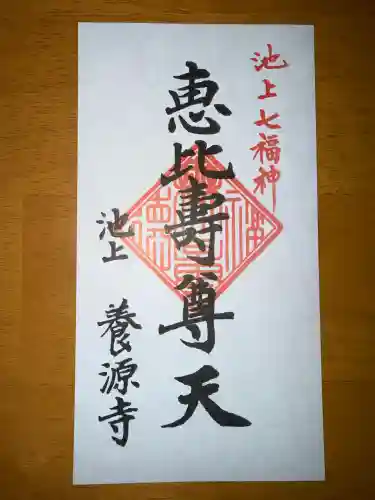 池上七福神
恵比寿尊天
池上 養源寺